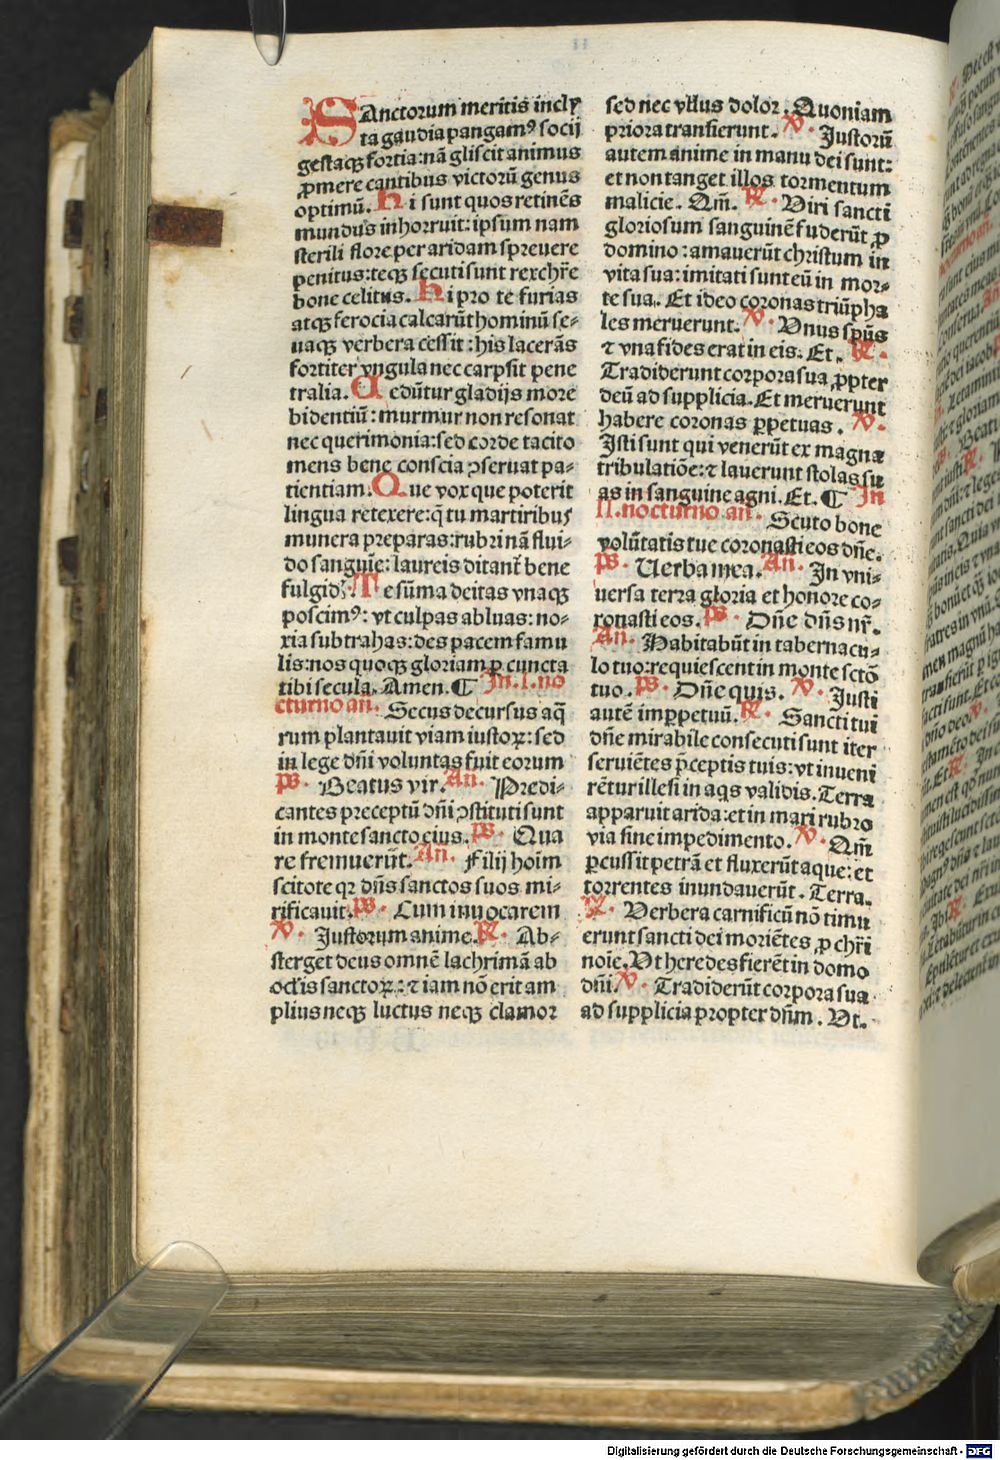 SAnctorum meritis incly
ta gaudia pangamꝰ socij
gestaqꝫ fortia: nã gliscit animus
ꝓmere cantibus victorũ genus
optimũ. Hi sunt quos retinẽs
mundus inhorruit: ipsum nam
sterili flore per aridam spreuere
penitus: teqꝫ secuti sunt rex chr̃e
bone celitus. Hi pro te furias
atqꝫ ferocia calcarũt hominũ se⸗
uaqꝫ verbera cessit: his lacerãs
fortiter vngula nec carpsit pene
tralia. Cedũtur gladijs more
bidentiũ: murmur non resonat
nec querimonia: sed corde tacito
mens bene conscia ꝯseruat pa⸗
tientiam. Que vox que poterit
lingua retexere: q̃ tu martiribus
munera preparas: rubri nã flui⸗
do sanguĩe: laureis ditant̃ bene
fulgidꝭ. Te sũma deitas vnaqꝫ
poscimꝰ: vt culpas abluas: no⸗
xia subtrahas: des pacem famu
lis: nos quoqꝫ gloriam ꝑ cuncta
tibi secula. Amen. ¶ In .I. no
cturno an̄. Secus decursus aq̃
rum plantauit viam iustoꝝ: sed
in lege dñi voluntas fuit eorum
ps. Beatus vir. An̄. Predi⸗
cantes preceptũ dñi ꝯstituti sunt
in monte sancto eius. ps. Qua
re fremuerũt. An̄. Filij hoĩm
scitote qꝛ dñs sanctos suos mi⸗
rificauit. ps. Cum inuocarem
℣. Justorum anime. ℟. Ab⸗
sterget deus omnẽ lachrimã ab
oclis sanctoꝝ: ⁊ iam nõ erit am
plius neqꝫ luctus neqꝫ clamor
sed nec vllus dolor. Quoniam
priora transierunt. ℣. Justorũ
autem anime in manu dei sunt:
et non tanget illos tormentum
malicie. Qm̃. ℟. Viri sancti
gloriosum sanguinẽ fuderũt ꝓ
domino: amauerũt christum in
vita sua: imitati sunt eũ in mor⸗
te sua. Et ideo coronas triũpha
les meruerunt. ℣. Vnus spũs
⁊ vna fides erat in eis. Et. ℟.
Tradiderunt corpora sua ꝓpter
deũ ad supplicia. Et meruerunt
habere coronas ꝑpetuas. ℣.
Isti sunt qui venerũt ex magna
tribulatiõe: ⁊ lauerunt stolas su
as in sanguine agni. Et. ¶ In
II. nocturno an̄. Scuto bone
volũtatis tue coronasti eos dñe.
ps. Uerba mea. An̄. In vni⸗
uersa terra gloria et honore co⸗
ronasti eos. ps. Dñe dñs nr̃.
An̄. Habitabũt in tabernacu⸗
lo tuo: requiescent in monte sctõ
tuo. ps. Dñe quis. ℣. Justi
autẽ imꝑpetuũ. ℟. Sancti tui
dñe mirabile consecuti sunt iter
seruiẽtes p̃ceptis tuis: vt inueni
rẽtur illesi in aqs validis. Terra
apparuit arida: et in mari rubro
via sine impedimento. ℣. Qm̃
ꝑcussit petrã et fluxerũt aque: et
torrentes inundauerũt. Terra.
℟. Verbera carnificũ nõ timu
erunt sancti dei moriẽtes ꝓ chr̃i
noĩe. Vt heredes fierẽt in domo
dñi. ℣. Tradiderũt corpora sua
ad supplicia propter dm̃. Vt.
Digitalisierung gefördert durch die Deutsche Forschungsgemeinschaft - DFG